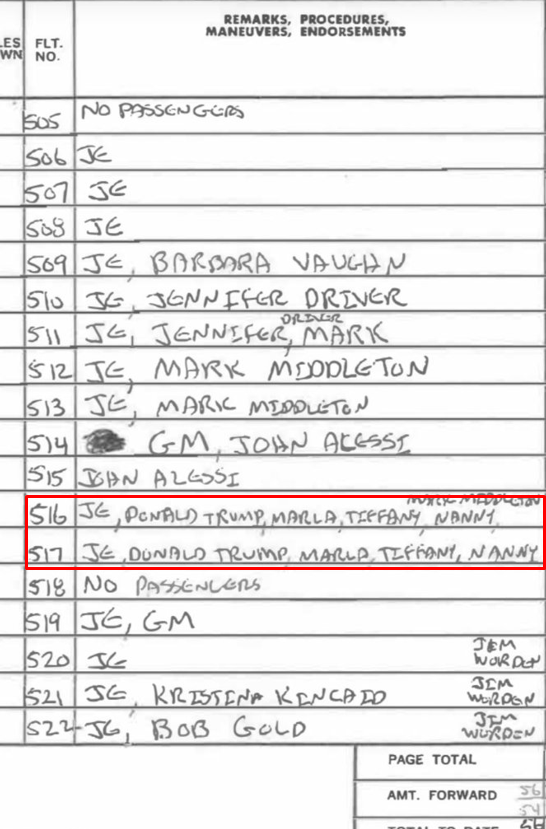 REMARKS, PROCEDURES,
MANEUVERS, ENDORSEMENTS
LES
WN
FLT.
NO.
505 NO PASSENGERS
506 JE
507 JE
508 JE
509 JE, BARBARA VAUGHN
510 JE, JENNIFER DRIVER
DRIVER
511 JE, JENNIFER, MARK
512 JE, MARK MIDDLETON
513 JE, MARK MIDDLETON
514 GM, JOHN ALESSI
515 JOHN ALESSI
MARK MIDDLETON
516 JE, DONALD TRUMP, MARLA, TIFFANY, NANNY
517 JE, DONALD TRUMP, MARLA, TIFFANY, NANNY
518 NO PASSENGERS
519 JE, GM
520 JE JIM
WORDEN
521 JE, KRISTINA KINCAID JIM
WORDEN
522 JE, BOB GOLD JIM
WORDEN
PAGE TOTAL
AMT. FORWARD 56
54
TOTAL TO DATE